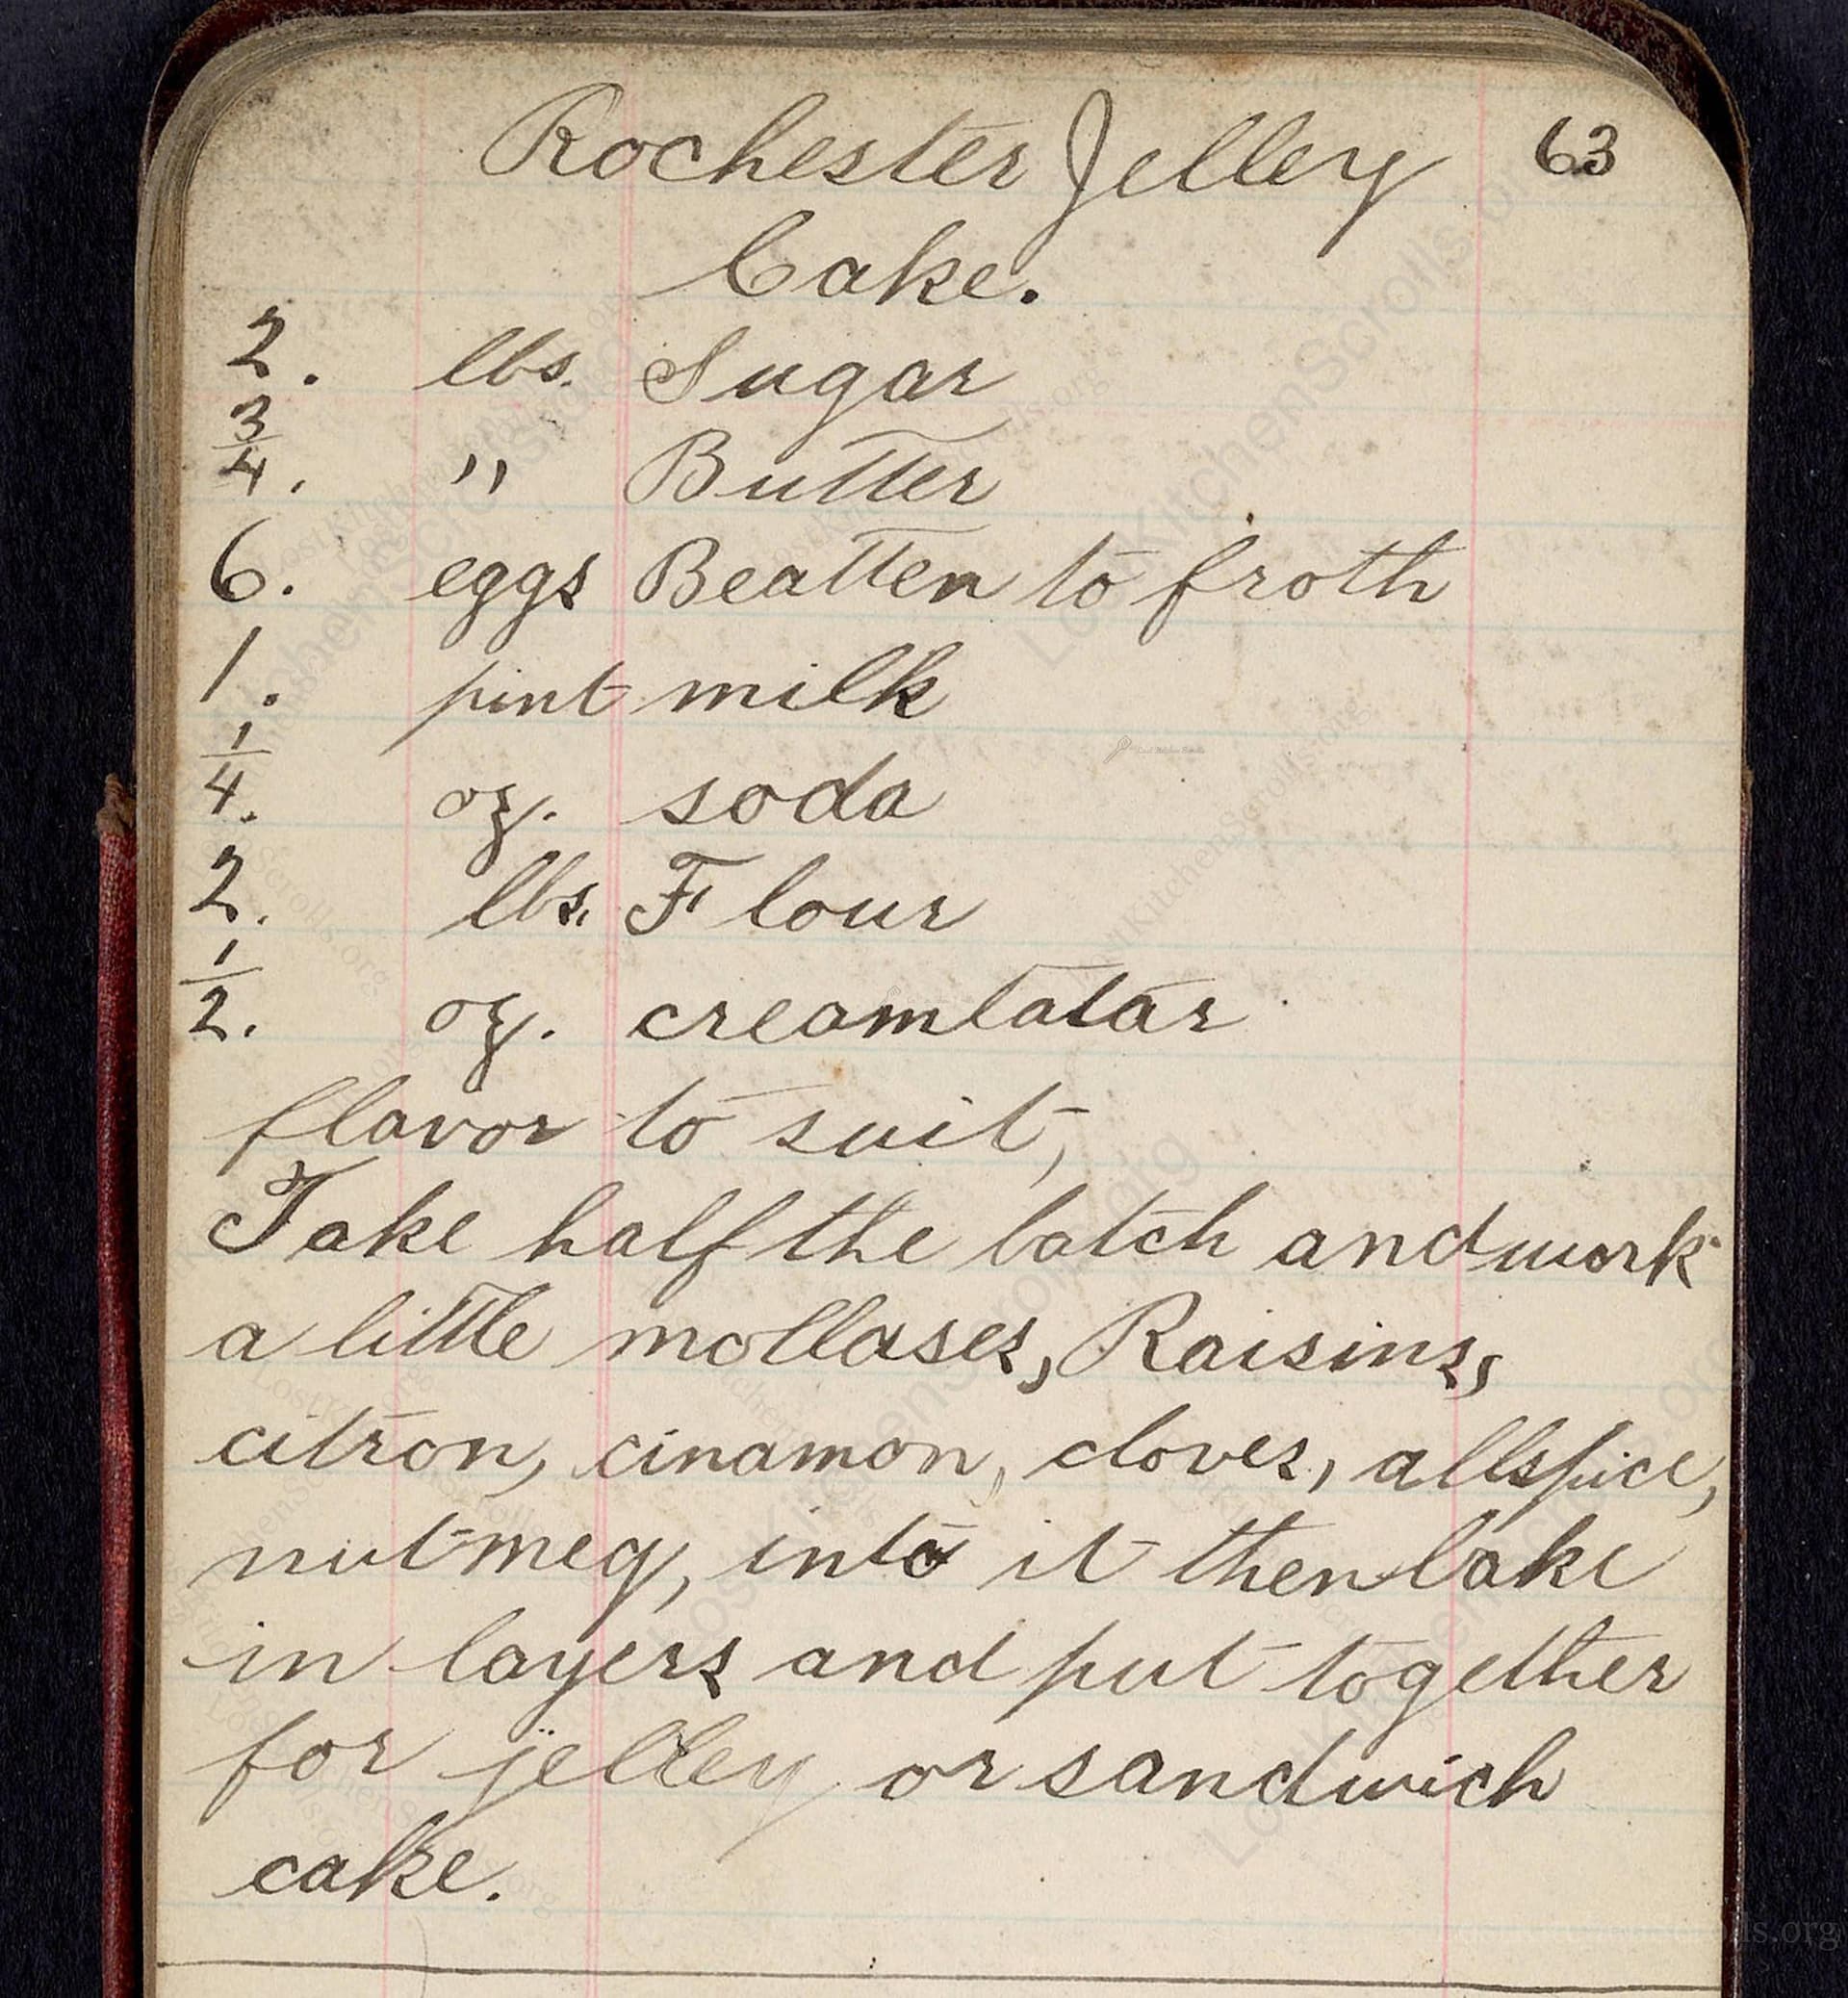 Rochester Jelley 63
Cake.
2. lbs. Sugar
3/4. " Butter
6. eggs Beatten to froth
1. pint milk
1/4. oz. soda
2. lbs. Flour
1/2. oz. creamtatar
flavor to suit,
Take half the batch and work
a little mollases, Raisins,
citron, cinamon, cloves, allspice,
nutmeg, into it then bake
in layers and put together
for jelley or sandwich
cake.
LostKitchenScrolls.org